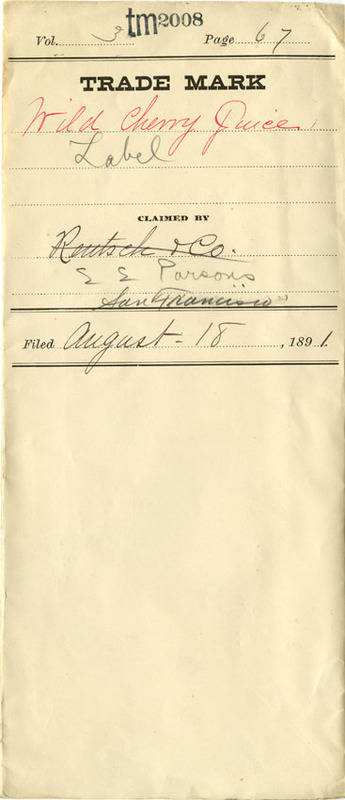 tm2008
Vol. 3 Page 67
TRADE MARK
Wild Cherry Juice.
Label
CLAIMED BY
Rentsch & Co.
E E Parsons
San Francisco
Filed August - 18, 1891.